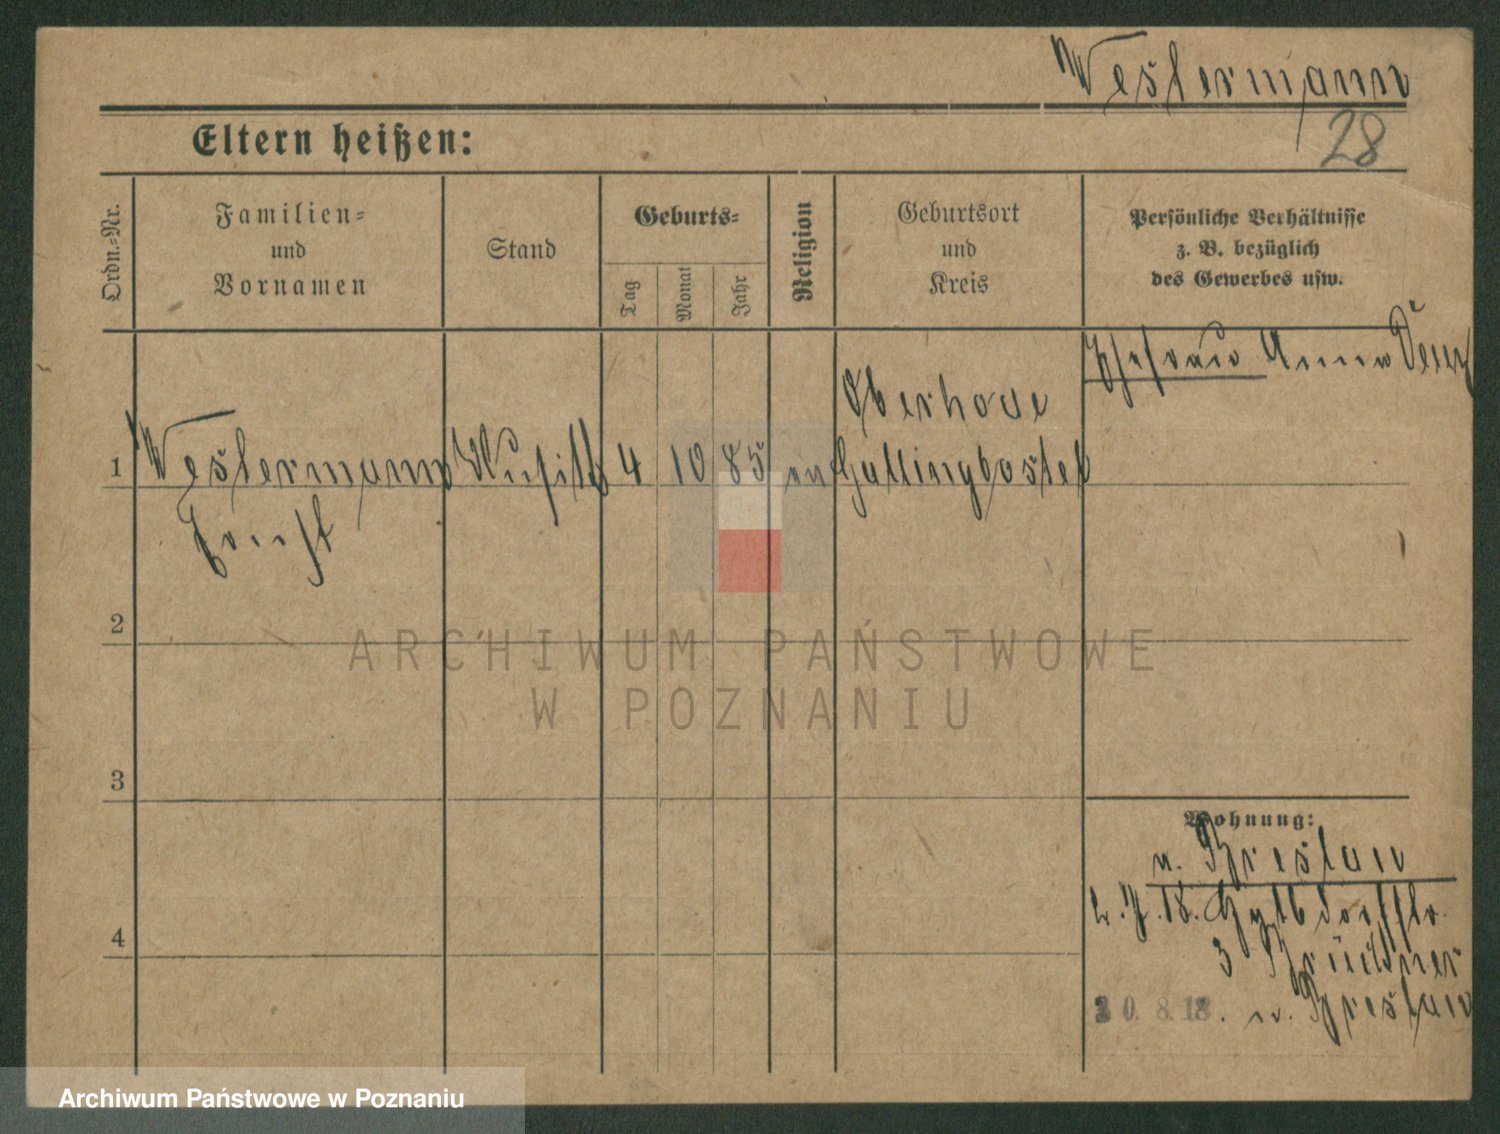 Westermann
28
Eltern heißen:
Ordn.=Nr.
Familien=
und
Vornamen
Stand
Geburts=
Tag
Monat
Jahr
Religion
Geburtsort
und
Kreis
Persönliche Verhältnisse
z. B. bezüglich
des Gewerbes usw.
Ehefrau Anna
Oberhode
1 Westermann 4 10 85 ev Fallingbostel
Ernst
2
3
Wohnung:
v. Breslau
18.
4
3 Brückner
20.8.18. n. Breslau
ARCHIWUM PAŃSTWOWE
W POZNANIU
Archiwum Państwowe w Poznaniu